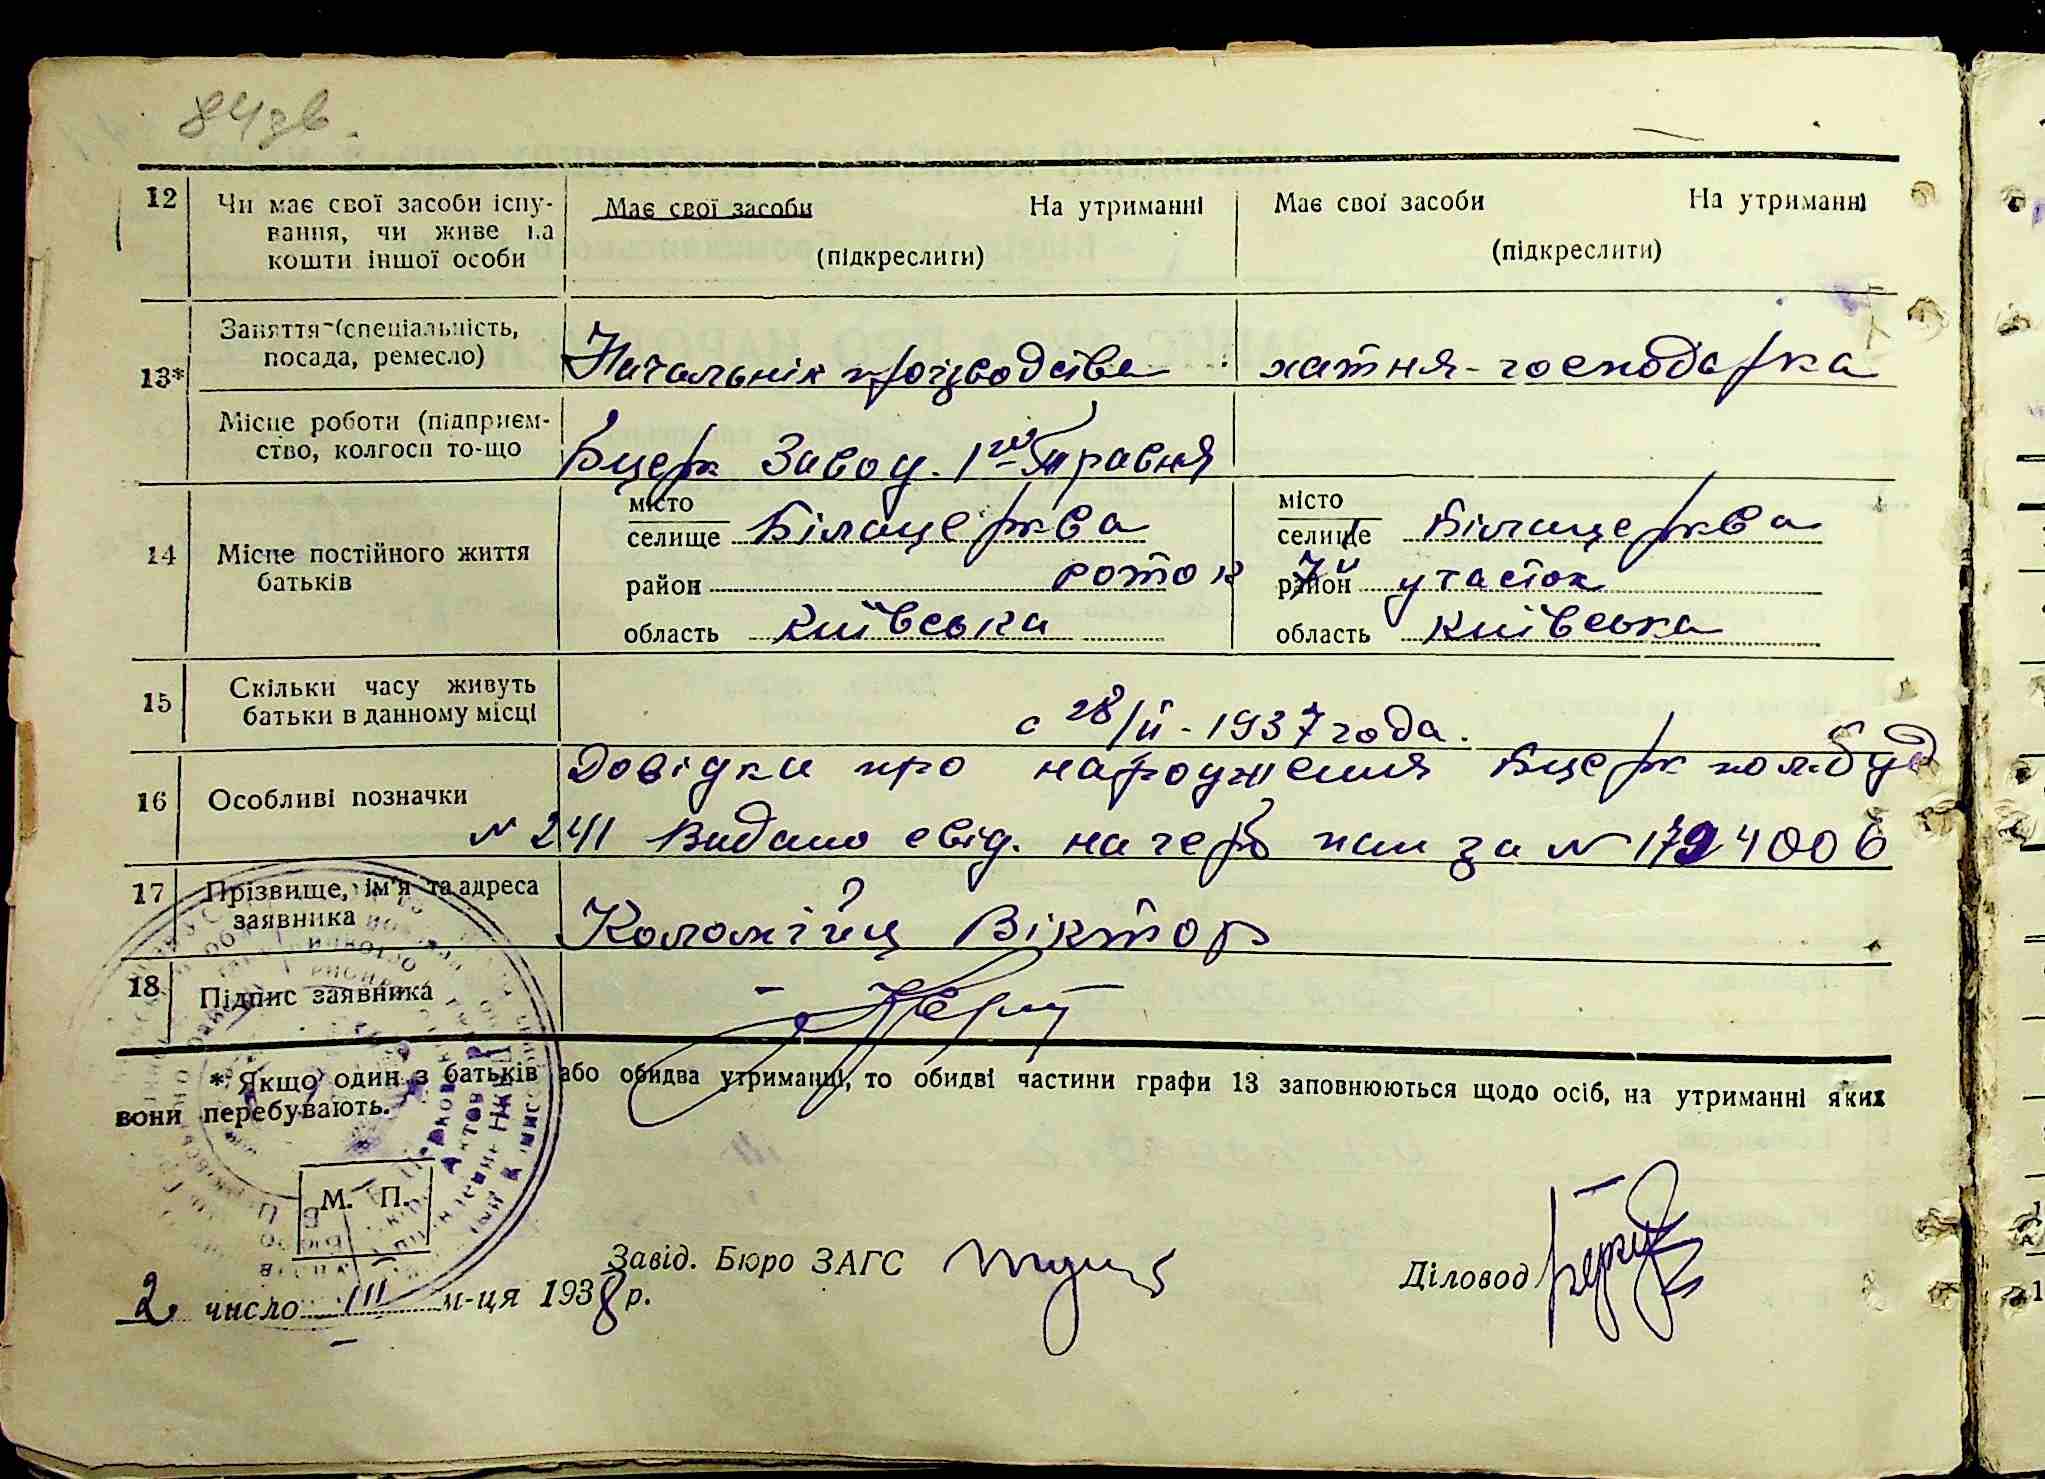 84зв.
12 Чи має свої засоби існування, чи живе на кошти іншої особи
Має свої засоби На утриманні
(підкреслити)
Має свої засоби На утриманні
(підкреслити)
13* Заняття (спеціальність, посада, ремесло)
Начальнік производства
хатня-господарка
Місце роботи (підприємство, колгосп то-що
Бцерк Завод. 1го Травня
14 Місце постійного життя батьків
місто
селище Білацерква
район роток
область київська
місто
селище Білацерква
район 7й участок
область київська
15 Скільки часу живуть батьки в данному місці
с 28/II - 1937 года.
16 Особливі позначки
Довідка про народження Бцерк пол.буд
№ 241 Видано свід. на герб пап за № 1794006
17 Прізвище, ім'я та адреса заявника
Коломієць Віктор
18 Підпис заявника
* Якщо один з батьків або обидва утриманці, то обидві частини графи 13 заповнюються щодо осіб, на утриманні яких
вони перебувають.
М. П.
Завід. Бюро ЗАГС
Діловод
2 число III м-ця 1938 р.